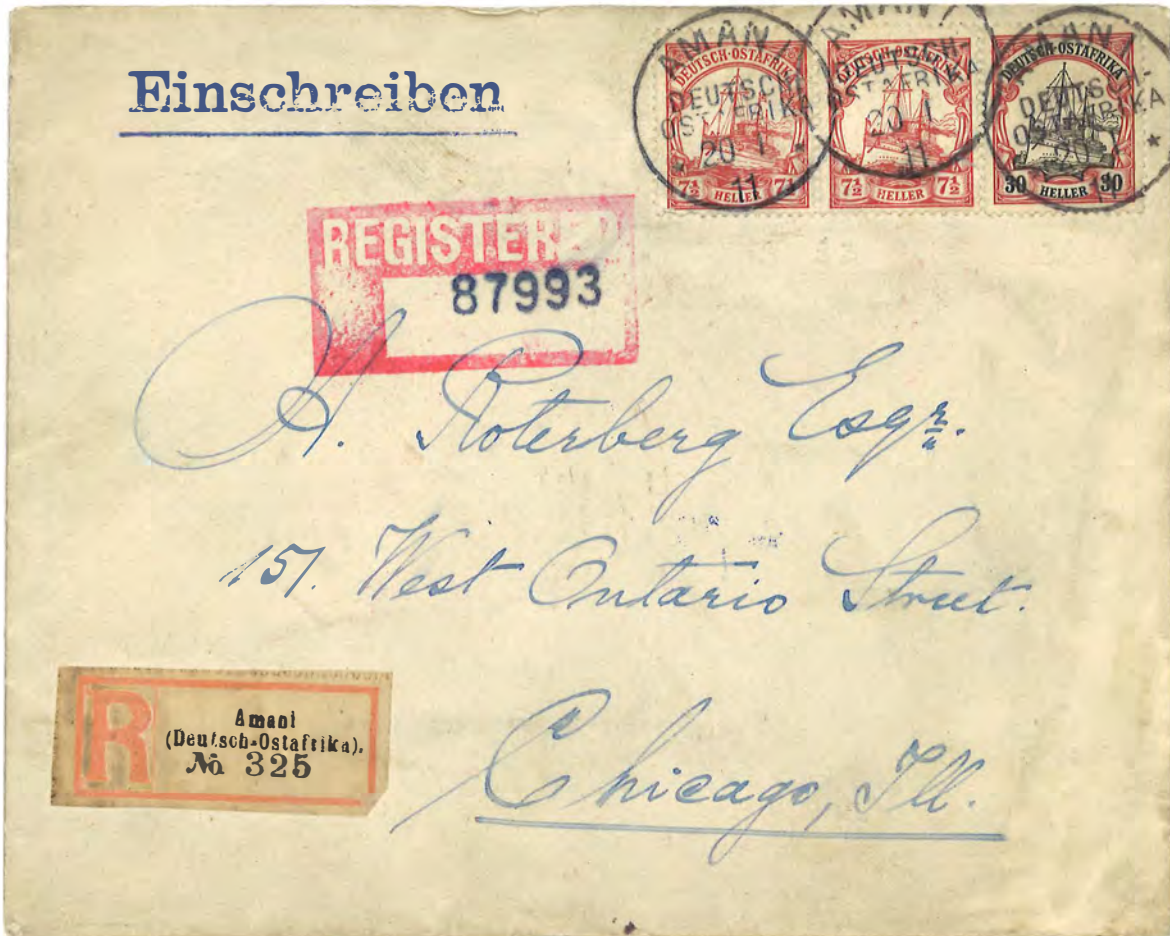 Einschreiben
DEUTSCH-OSTAFRIKA
7½ HELLER 7½
DEUTSCH-OSTAFRIKA
7½ HELLER 7½
DEUTSCH-OSTAFRIKA
30 HELLER 30
AMANI
DEUTSCH-
OSTAFRIKA
20 1
11
AMANI
DEUTSCH-
OSTAFRIKA
20 1
11
AMANI
DEUTSCH-
OSTAFRIKA
20
11
REGISTERED
87993
A. Roterberg Esqr.
151. West Ontario Street.
Chicago, Ill.
R
Amani
(Deutsch-Ostafrika).
No 325